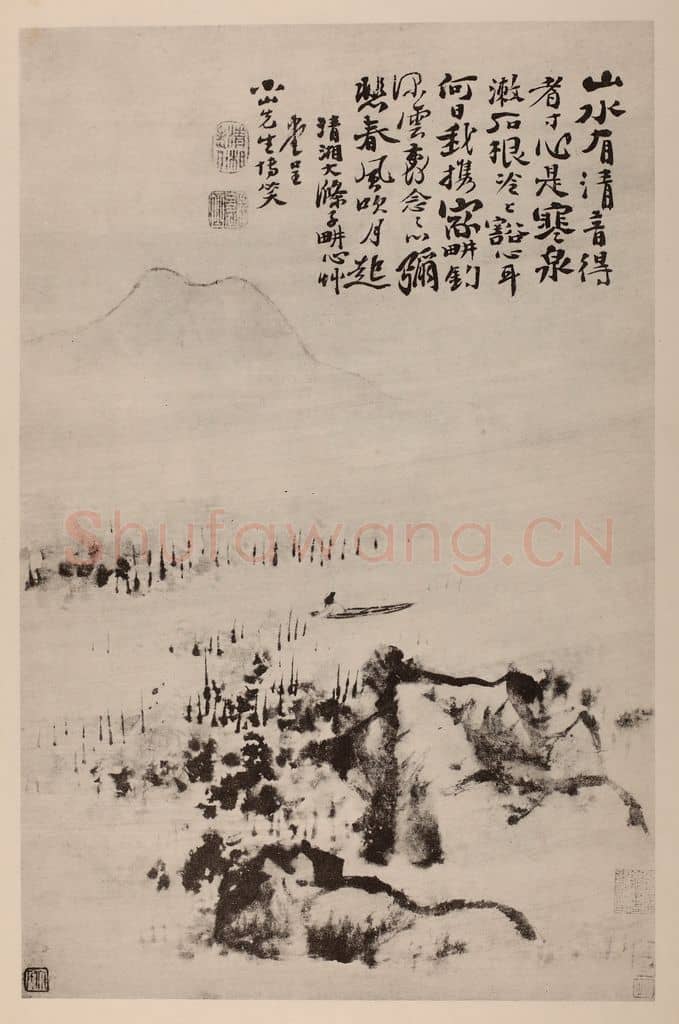 山水有清音得
者寸心是寒泉
漱石根冷々豁心耳
何日我携家畊釣
深雲裏念之心彌
愁春風吹月起
清湘大滌子畊心艸
堂呈
小山先生博笑
Shufawang.CN